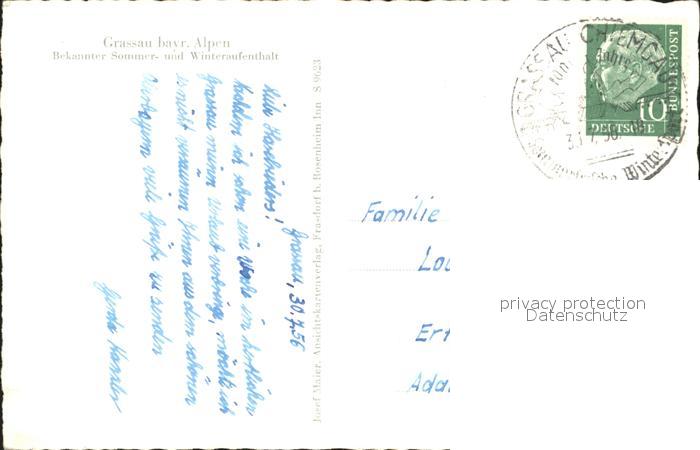 Grassau bayr. Alpen
Bekannter Sommer- und Winteraufenthalt
Josef Maier, Ansichtskartenverlag, Frasdorf b. Rosenheim Inn S 9623
Grassau, 30.7.56
Liebe
Nachdem ich schon eine Woche im herrlichen
Grassau meinen Urlaub verbringe, möchte ich
es nicht versäumen Ihnen aus dem schönen
Oberbayern viele Grüße zu senden
Gerda
Familie
Lou
Ert
Adal
GRASSAU CHIEMGAU
Jahre
DEUTSCHE
BUNDESPOST
10
privacy protection
Datenschutz